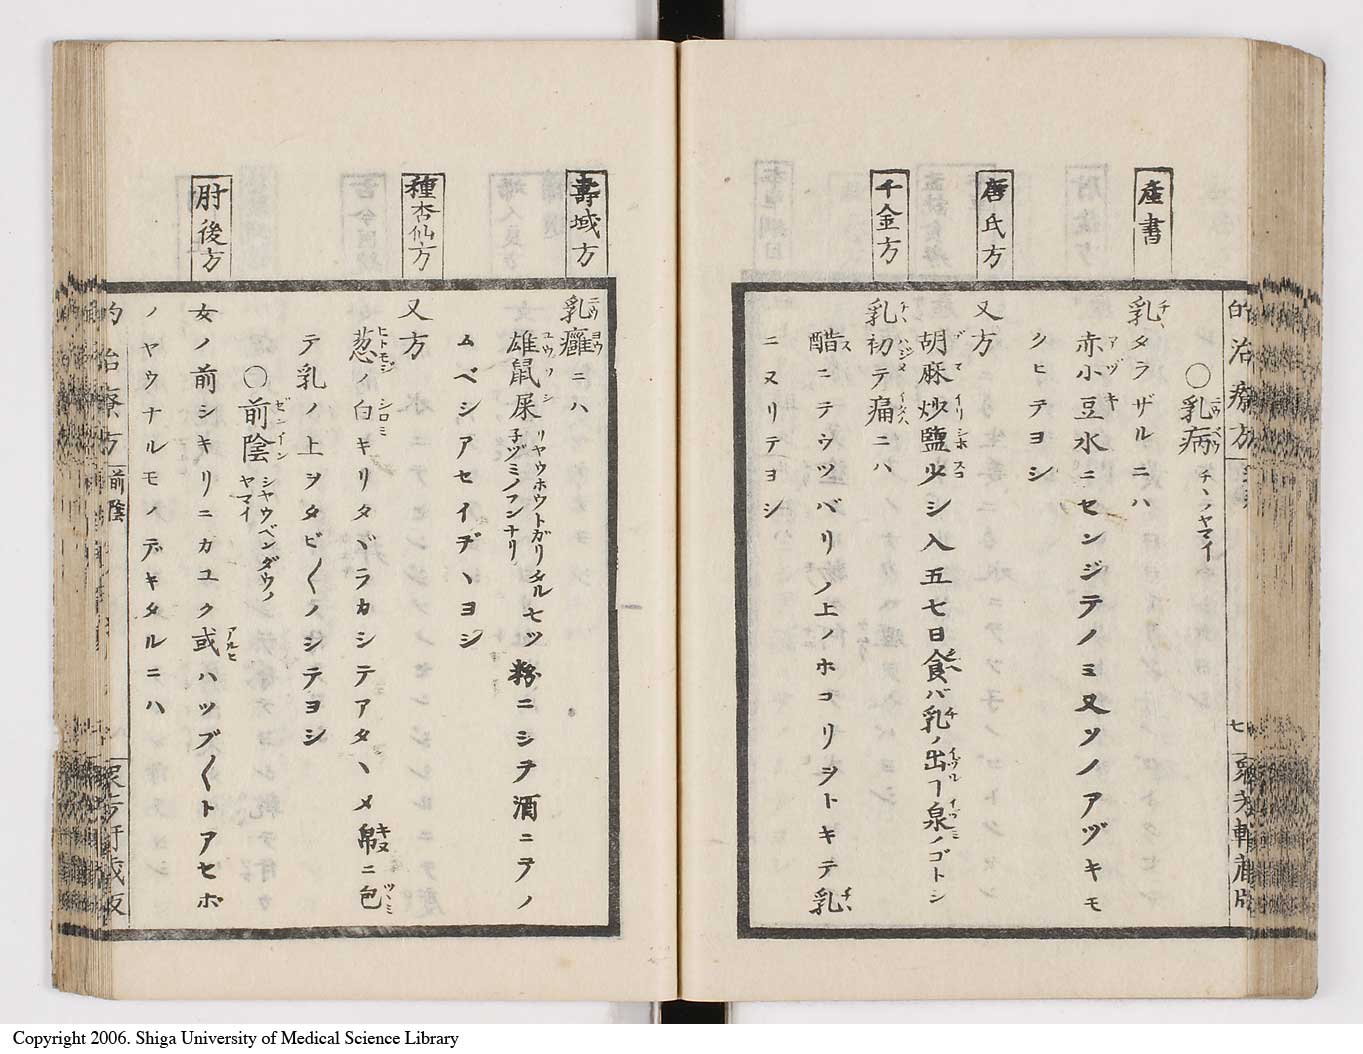 産書
唐氏方
千金方
○乳病 チヽノヤマイ
乳タラザルニハ
赤小豆水ニセンジテノミ又ツノアヅキモ
クヒテヨシ
又方
胡麻炒鹽少シ入五七日食バ乳ノ出ヿ泉ノゴトシ
乳初テ痛ニハ
醋ニテウツバリノ上ノホコリヲトキテ乳
ニヌリテヨシ
壽域方
種杏仙方
肘後方
乳癰ニハ
雄鼠屎 リヤウホウトガリタル子ヅミノフンナリ 七ツ粉ニシヲ酒ニテノ
ムベシアセイヂヽヨシ
又方
葱ノ白キリタヾラカシテアタヽメ帛ニ包
テ乳ノ上ヲタビ〱ノシテヨシ
○前陰 シヤウベンダウノヤマイ
女ノ前シキリニカユク或ハツブ〱トアセボ
ノヤウナルモノデキタルニハ
的治療方
前陰
Copyright 2006. Shiga University of Medical Science Library